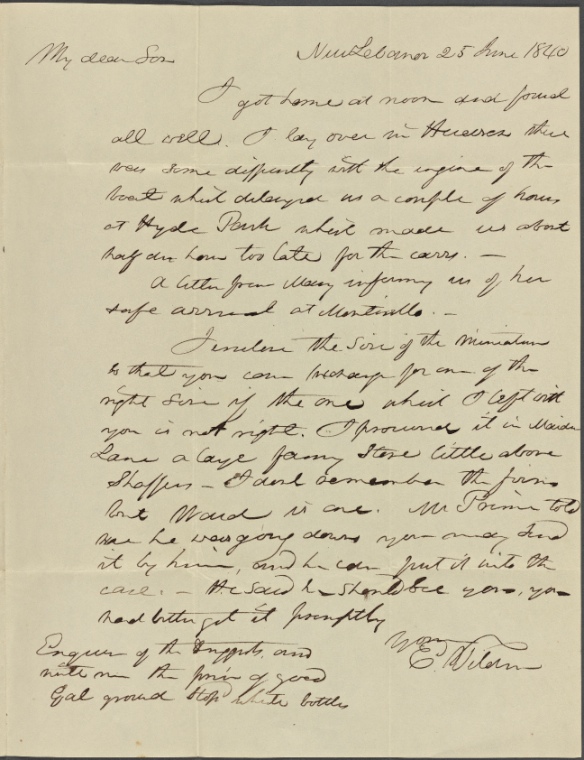 My dear Son New Lebanon 25 June 1840
I got home at noon and found
all well. I lay over in Hudson there
was some difficulty with the engine of the
boat which delayed us a couple of hours
at Hyde Park which made us about
half an hour too late for the carrs. —
A letter from Mary informs us of her
safe arrival at Monticello. —
I enclose the Size of the Miniature
so that you can exchange for one of the
right Size if the one which I left with
you is not right. I procured it in Maiden
Lane a large fancy Store little above
Shaffers — I dont remember the firm
but Ward is one. Mr Prime told
me he was going down you may send
it by him, and he can put it into the
case. — He said he should see you, you
had better get it promptly
Yours
E Tilden
Enquire of the Druggists and
write me the price of good
Gal ground Stop white bottles